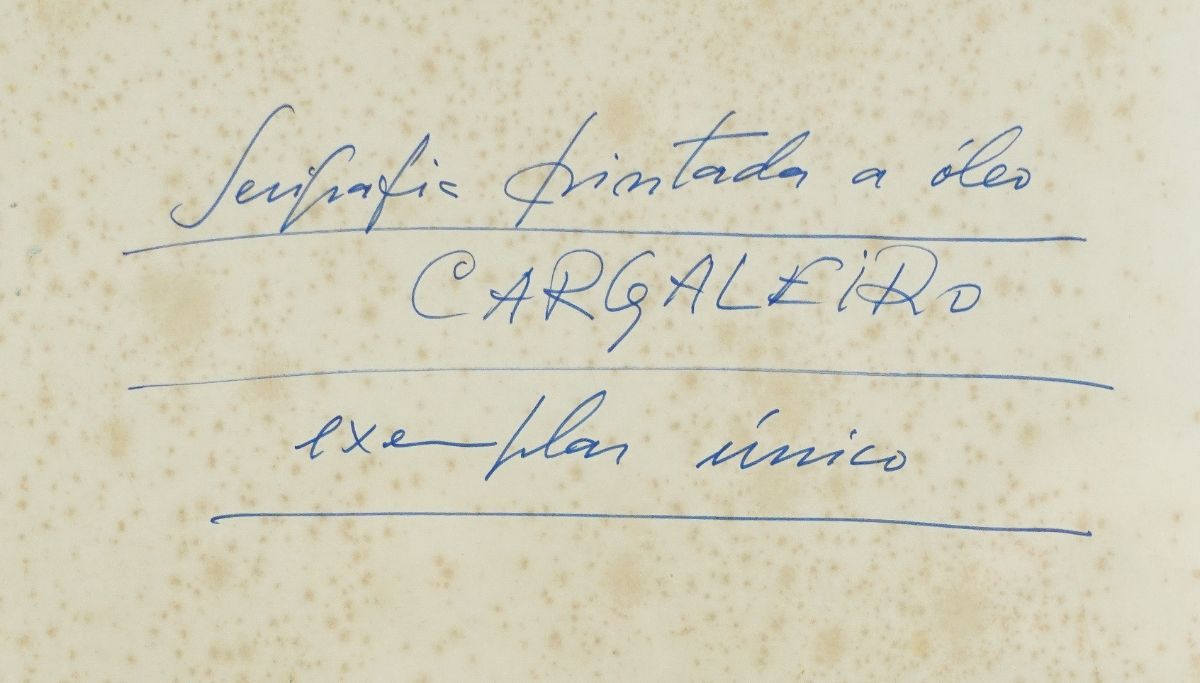 Serigrafia pintada a óleo
CARGALEIRO
exemplar único